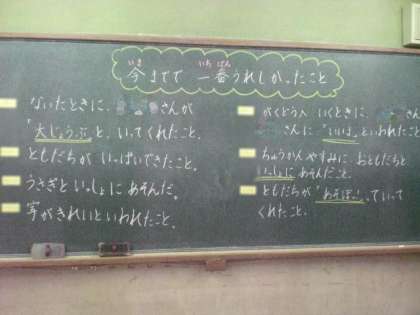 今までで 一番うれしかったこと
いま いちばん
ないたときに、 さんが
「大じょうぶ」と、いってくれたこと。
ともだちが いっぱいできたこと。
うさぎと いっしょに あそんだ。
字がきれいといわれたこと。
がくどうへ いくときに、
さんに「いいよ」といわれたこと
ちゅうかんやすみに おともだちと
いっしょに あそんだこと。
ともだちが「あそぼ!」っていって
くれたこと。